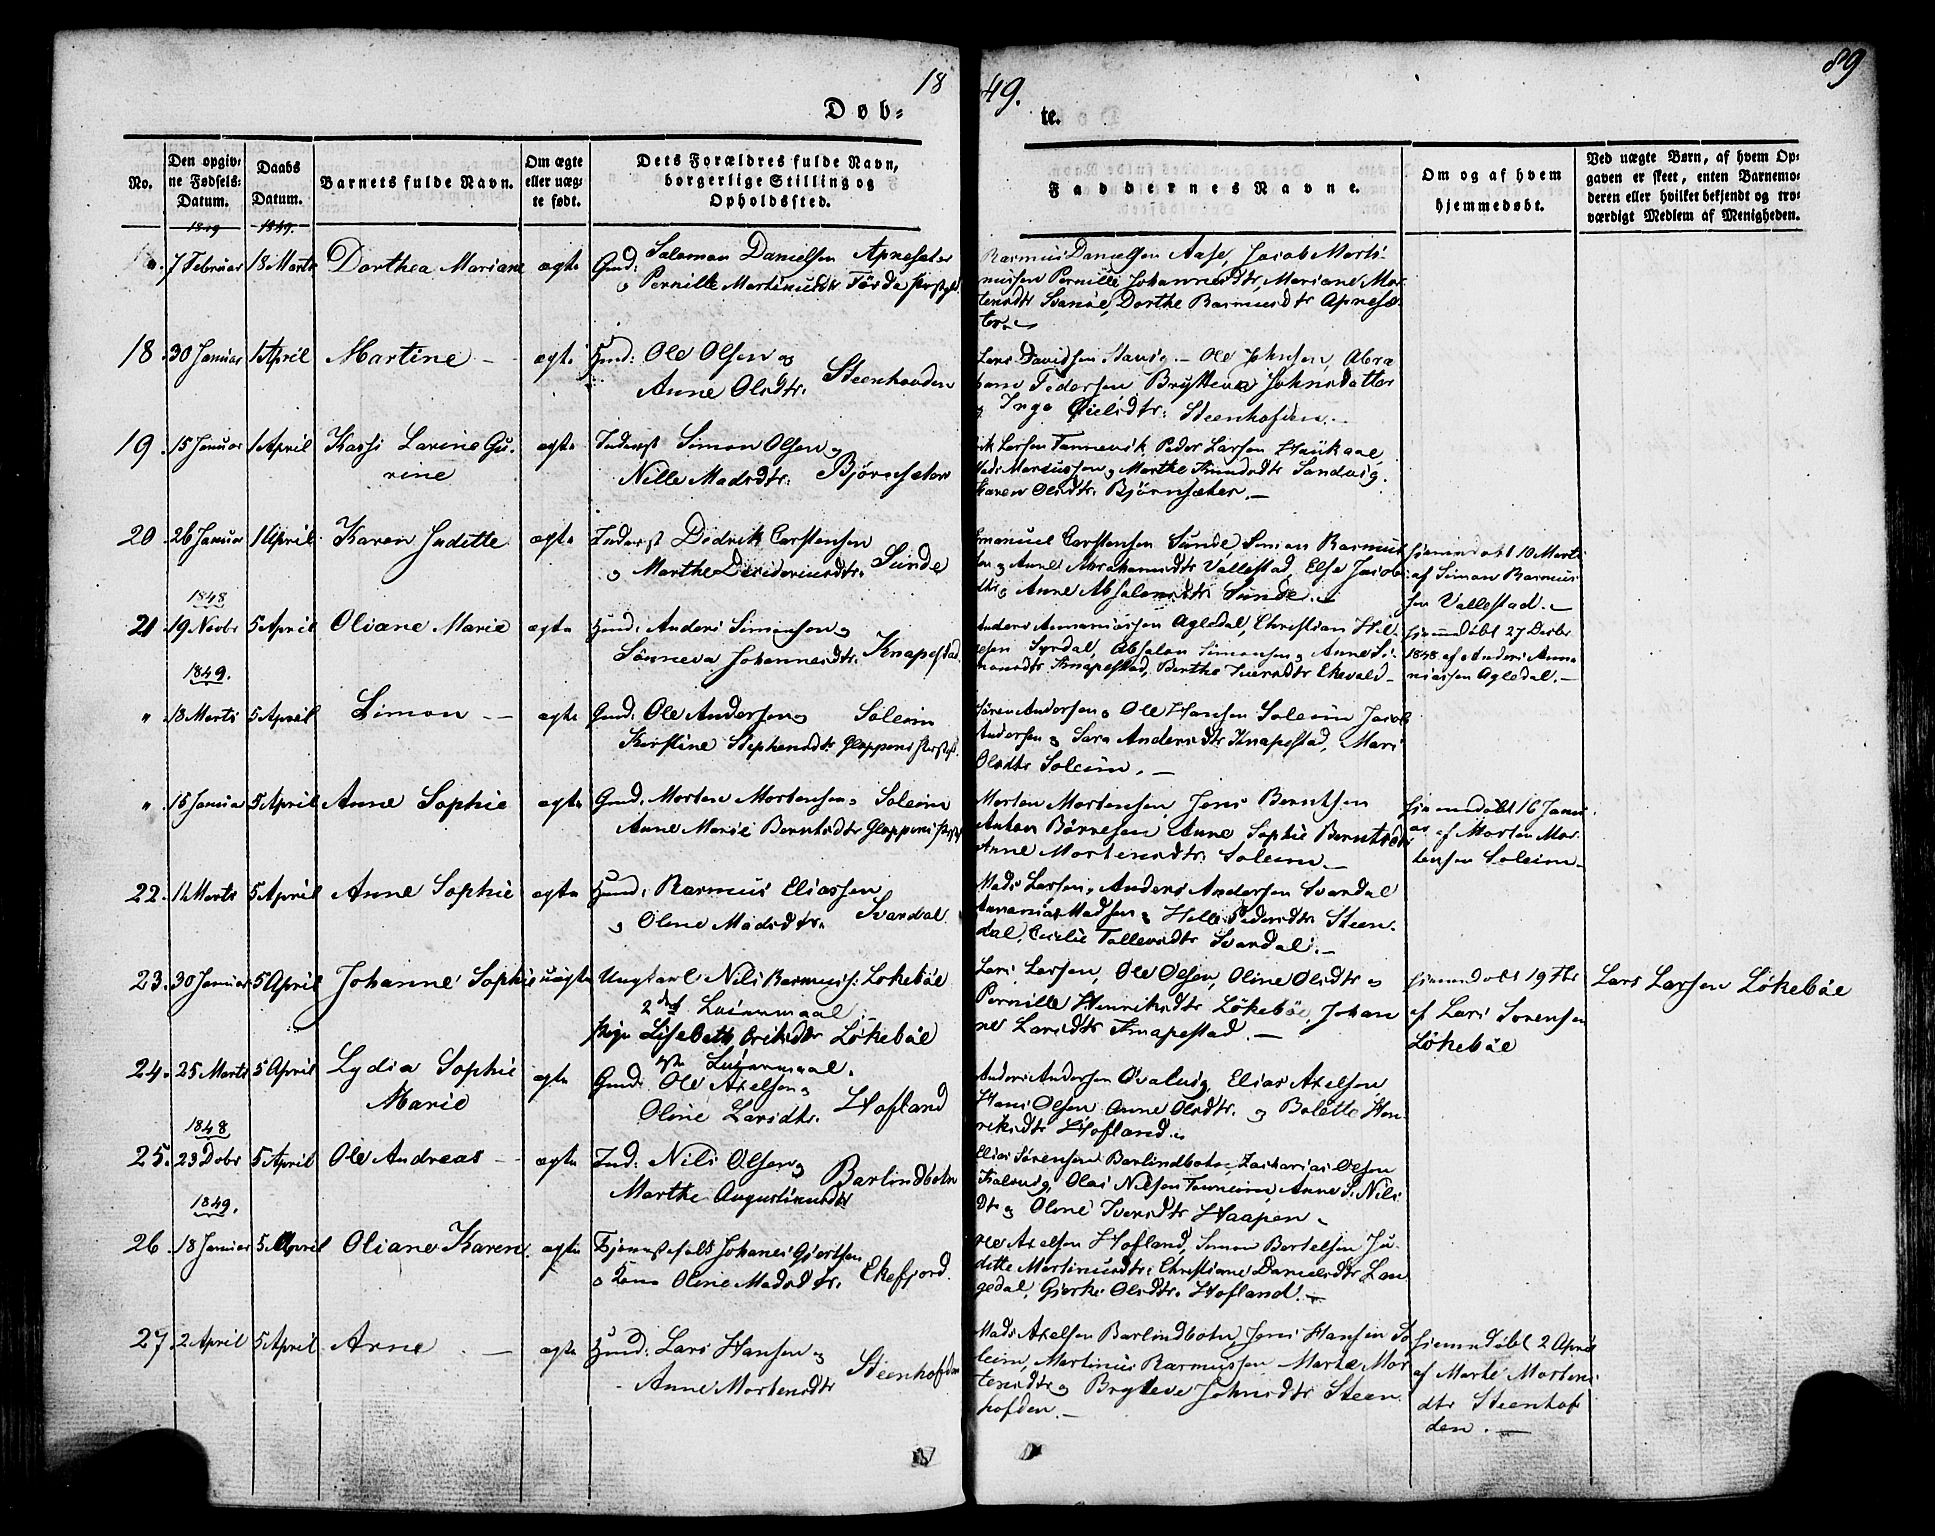 18
49.
89
Døb-
te.
No.
Den opgiv-
ne Fødsels-
Datum.
Daabs
Datum.
Barnets fulde Navn.
Om ægte
eller uæg-
te født.
Dets Forældres fulde Navn,
borgerlige Stilling og
Opholdssted.
Faddernes Navne.
Om og af hvem
hjemmedøbt.
Ved uægte Børn, af hvem Op-
gaven er skeet, enten Barnemo-
deren eller hvilket bekjendt og tro-
værdigt Medlem af Menigheden.
1849 1849.
" 7 Februar 18 Marts Dorthea Mariane ægte Gmd: Salomon Danielsen Apneseter
og Pernille Martinusdtr Förde
Rasmus Danielsen Aase, Jacob Morti-
nussen Pernille Johannesdtr, Mariane Mor
tensdtr Svanöe, Dorthe Rasmusdtr Apnesæ
ter
18. 30 Januar 1 April Martine - ægte Huusm: Ole Olsen og
Anne Olsdtr. Steenhovden
Lars Davidsen - Ole Johnsen, Abra
ham Pedersen Brytteva Johnsdatter
og Inge Steenhofden.-
19. 15 Januar 1 April Kassi Larine Gu-
rine ægte Inderst Simon Olsen og
Nille Madsdtr: Bjørnseter
Larsen Tonnevik Peder Larsen Haukaae,
Mads Marcussen og Marthe Sandvig.
Karen Olsdtr. Bjørnsæter.-
20 26 Januar 1 April Karen Juditte ægte Inderst Didrik Carstensen
og Marthe Desideriusdtr. Sunde
Emanuel Carstensen Sunde, Simon Rasmus
sen og Anne Abrahamsdtr Vallestad, Else Jacob
dtr og Anne Absalonsdtr Sunde.-
hjemmedøbt 10 Marts
af Simon Rasmus
sen Vallestad.-
1848
21 19 Novbr 5 April Oliane Marie ægte Huusm: Anders Simonsen og
Sønneva Johannesdtr. Knapestad.
Anders Annaniassen Agledal, Christian Hel-
gesen Syrdal, Absalon Simonsen og Anne Si-
monsdtr Knapestad, Berthe Iversdtr Ekevald-
hjemmedøbt 27 Decbr
1848 af Anders Anna
niassen Agledal.-
1849.
" 18 Marts 5 April Simon - ægte Gmd: Ole Andersen og Soleim
Kirstine Stephensdtr Gloppens
Sören Andersen og Ole Hansen Soleim Jacob
Andersen og Sara Andersdtr Knapestad, Mari
Olsdtr Soleim.-
" 15 Januar 5 April Anne Sophie ægte Gmd. Morten Mortensen og Soleim
Anne Marie Berntsdtr Gloppens
Morten Mortensen, Jens Berntsen
Anton Børresen, Anne Sophie Berntsdtr
Anne Mortensdtr Soleim.-
hjemmedøbt 16 Janu
ar af Morten Mor-
tensen Soleim-
22. 11 Marts 5 April Anne Sophie ægte Huusm: Rasmus Eliassen
og Oline Madsdtr. Svardal
Mads Larsen, Anders Andersen Svardal
Annanias Madsen og Helle Pedersdtr Steen-
dal, Cecilie Tollevsdtr Svardal.-
23. 30 Januar 5 April Johanne Sophie uægte Ungkarl Nils Rasmuss: Løkebøe
2det Leiermaal
Pige Lisebeth Eriksdtr Løkebøe
1ste Leiermaal.
Lars Larsen, Ole Olsen, Oline Olsdtr og
Pernille Henriksdtr Løkebøe, Johan
ne Larsdtr Knapestad.-
hjemmedøbt 19 Fbr
af Lars Sorensen
Løkebøe
Lars Larsen Løkebøe
24. 25 Marts 5 April Lydia Sophie
Marie ægte Gmd: Ole Axelsen og
Oline Larsdtr. Hofland
Anders Andersen Qvalvig, Elias Axelsen
Hans Olsen Anne Olsdtr. og Bolette Hen-
riksdtr Hofland.
1848
25. 23 Dcbr 5 April Ole Andreas - ægte Ind: Nils Olsen og
Marthe Augustinusdtr Barlindbotn
Elias Sørensen Barlindbotn, Zacharias Olsen
Olai Nilsen Anne S. Nils
dtr og Oline Iversdtr Haapen.
1849.
26 18 Januar 5 April Oliane Karen. ægte Johanes Gjertsen
og Kone Oline Madsdtr. Ekefjord.
Ole Axelsen Hofland, Simon Bertelsen Ju-
ditte Martinusdtr. Christiane Danielsdtr Lan
gedal, Gjerke Olsdtr. Hofland.-
27 2 April 5 April Arne - ægte Huusm: Lars Hansen og
Anne Mortensdtr Steenhofden
Mads Axelsen Barlindbotn, Jens Hansen So
leim, Martinus Rasmussen Marte Mor
tensdtr og Bryteve Johnsdtr Steen
hofden.-
hjemmedøbt 2 April
af Marte Mortens
dtr Steenhof
den.-